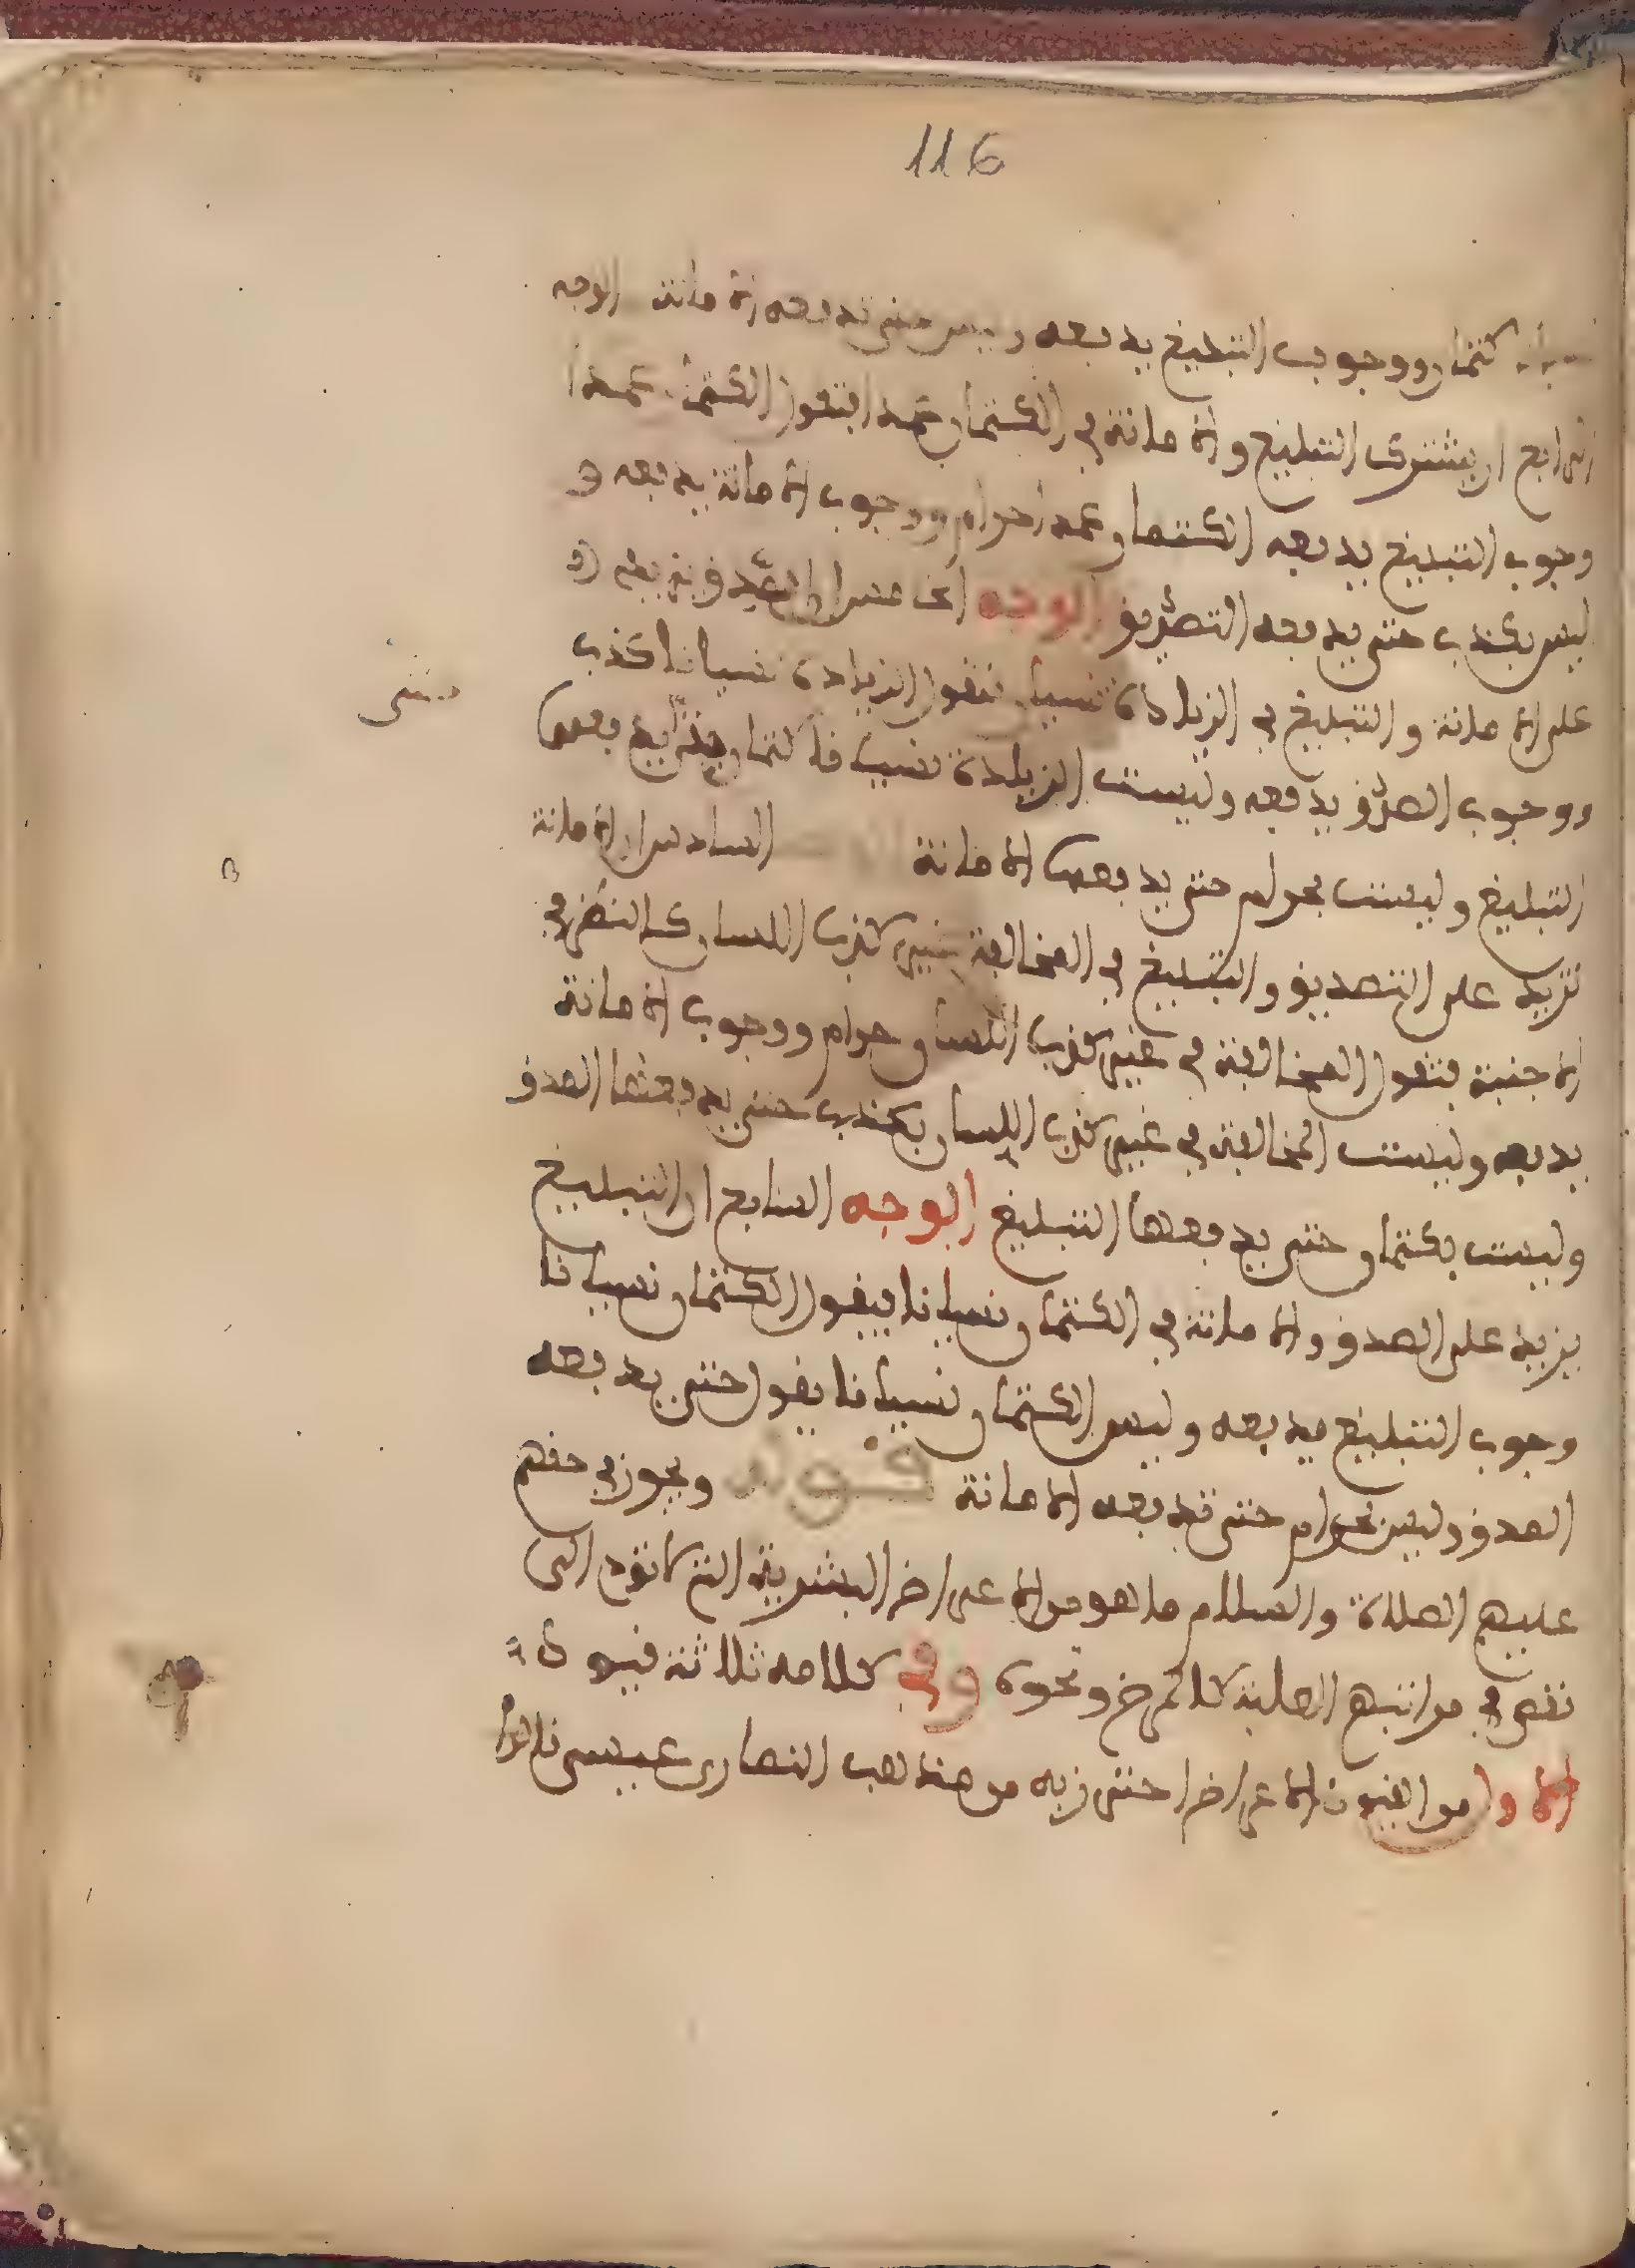 116
كتمان ووجوب التبليغ يدفعه وليس حتى تدفعه الامانة الوجه
الرابع ان يشترك التبليغ والامانة في الكتمان عمدا فتقول الكتمان عمدا
وجوب التبليغ يدفعه الكتمان عمدا حرام ووجوب الامانة يدفعه و
ليس بكذب حتى يدفعه التصديق الوجه الخامس ان الصدق يزيد
على الامانة والتبليغ في الزيادة نسيانا فنقول الزيادة نسيانا كذب
ووجوب الصدق يدفعه وليست الزيادة نسيانا كتمان حتى يدفعها
التبليغ وليست بحرام حتى يدفعها الامانة السادس ان الامانة
تزيد على التصديق والتبليغ في المخالفة غير كذب اللسان كالنظر في
الاجنبية فتقول المخالفة في غير كذب اللسان حرام ووجوب الامانة
يدفعه وليست المخالفة في غير كذب اللسان بكذب حتى يدفعها الصدق
وليست بكتمان حتى يدفعها التبليغ الوجه السابع ان التبليغ
يزيد على الصدق والامانة في الكتمان نسيانا فيقول الكتمان نسيانا
وجوب التبليغ يدفعه وليس الكتمان نسيانا يقول حتى يدفعه
الصدق وليس بحرام حتى تدفعه الامانة قوله ويجوز في حقهم
عليهم الصلاة والسلام ما هو من الاعراض البشرية التي لا تؤدي الى
نقص في مراتبهم العلية كالمرض ونحوه وفي كلامه ثلاثة قيود
الاول من القيود الاعراض احترز به من مذهب النصارى عيسى قالوا